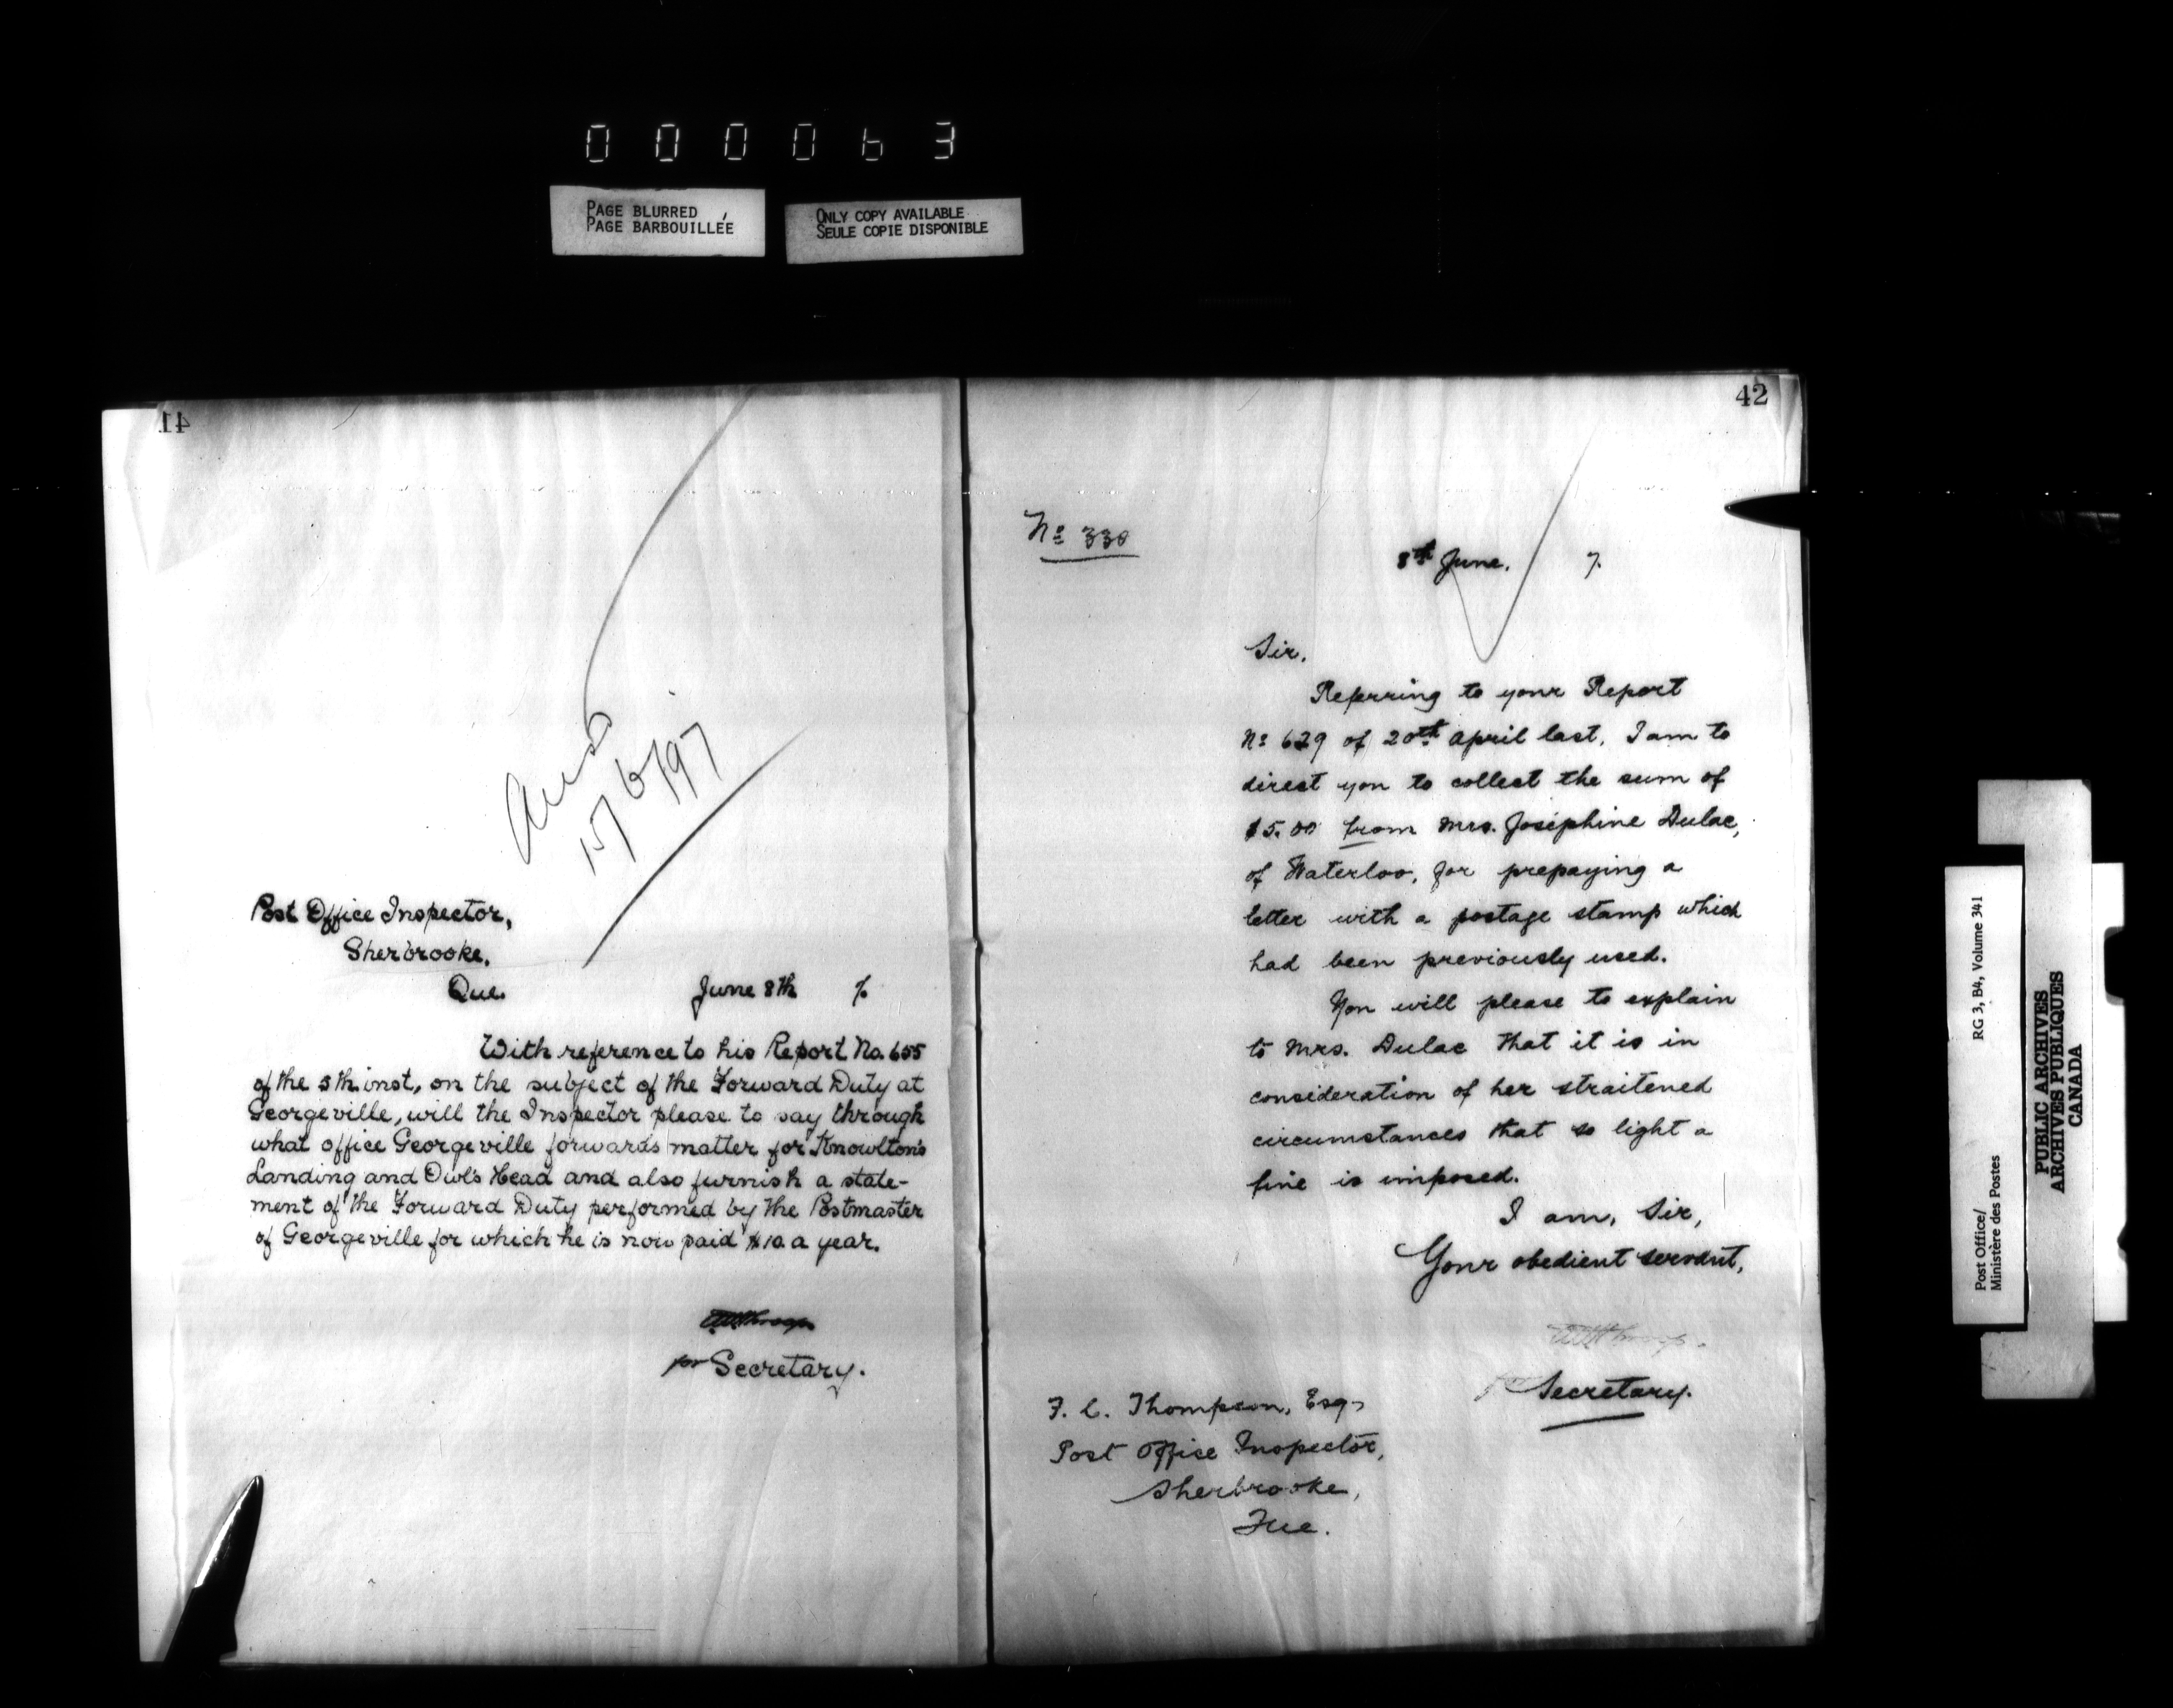 000063
PAGE BLURRED
PAGE BARBOUILLÉE
ONLY COPY AVAILABLE
SEULE COPIE DISPONIBLE
41
Ansd
15/6/97
Post Office Inspector,
Sherbrooke,
Que.
June 8th 7.
With reference to his Report No. 655
of the 5th inst, on the subject of the Forward Duty at
Georgeville, will the Inspector please to say through
what office Georgeville forwards matter for Knowlton's
Landing and Owl's Head and also furnish a state-
ment of the Forward Duty performed by the Postmaster
of Georgeville for which he is now paid $10. a year.
for Secretary.
42
No 330
8th June. 7.
Sir,
Referring to your Report
No 629 of 20th April last, I am to
direct you to collect the sum of
$5.00 from Mrs. Josephine Dulac,
of Waterloo, for prepaying a
letter with a postage stamp which
had been previously used.
You will please to explain
to Mrs. Dulac that it is in
consideration of her straitened
circumstances that so light a
fine is imposed.
I am, Sir,
Your obedient servant,
for Secretary.
F. C. Thompson, Esq,
Post Office Inspector,
Sherbrooke,
Que.
Post Office/
Ministère des Postes
RG 3, B4, Volume 341
PUBLIC ARCHIVES
ARCHIVES PUBLIQUES
CANADA